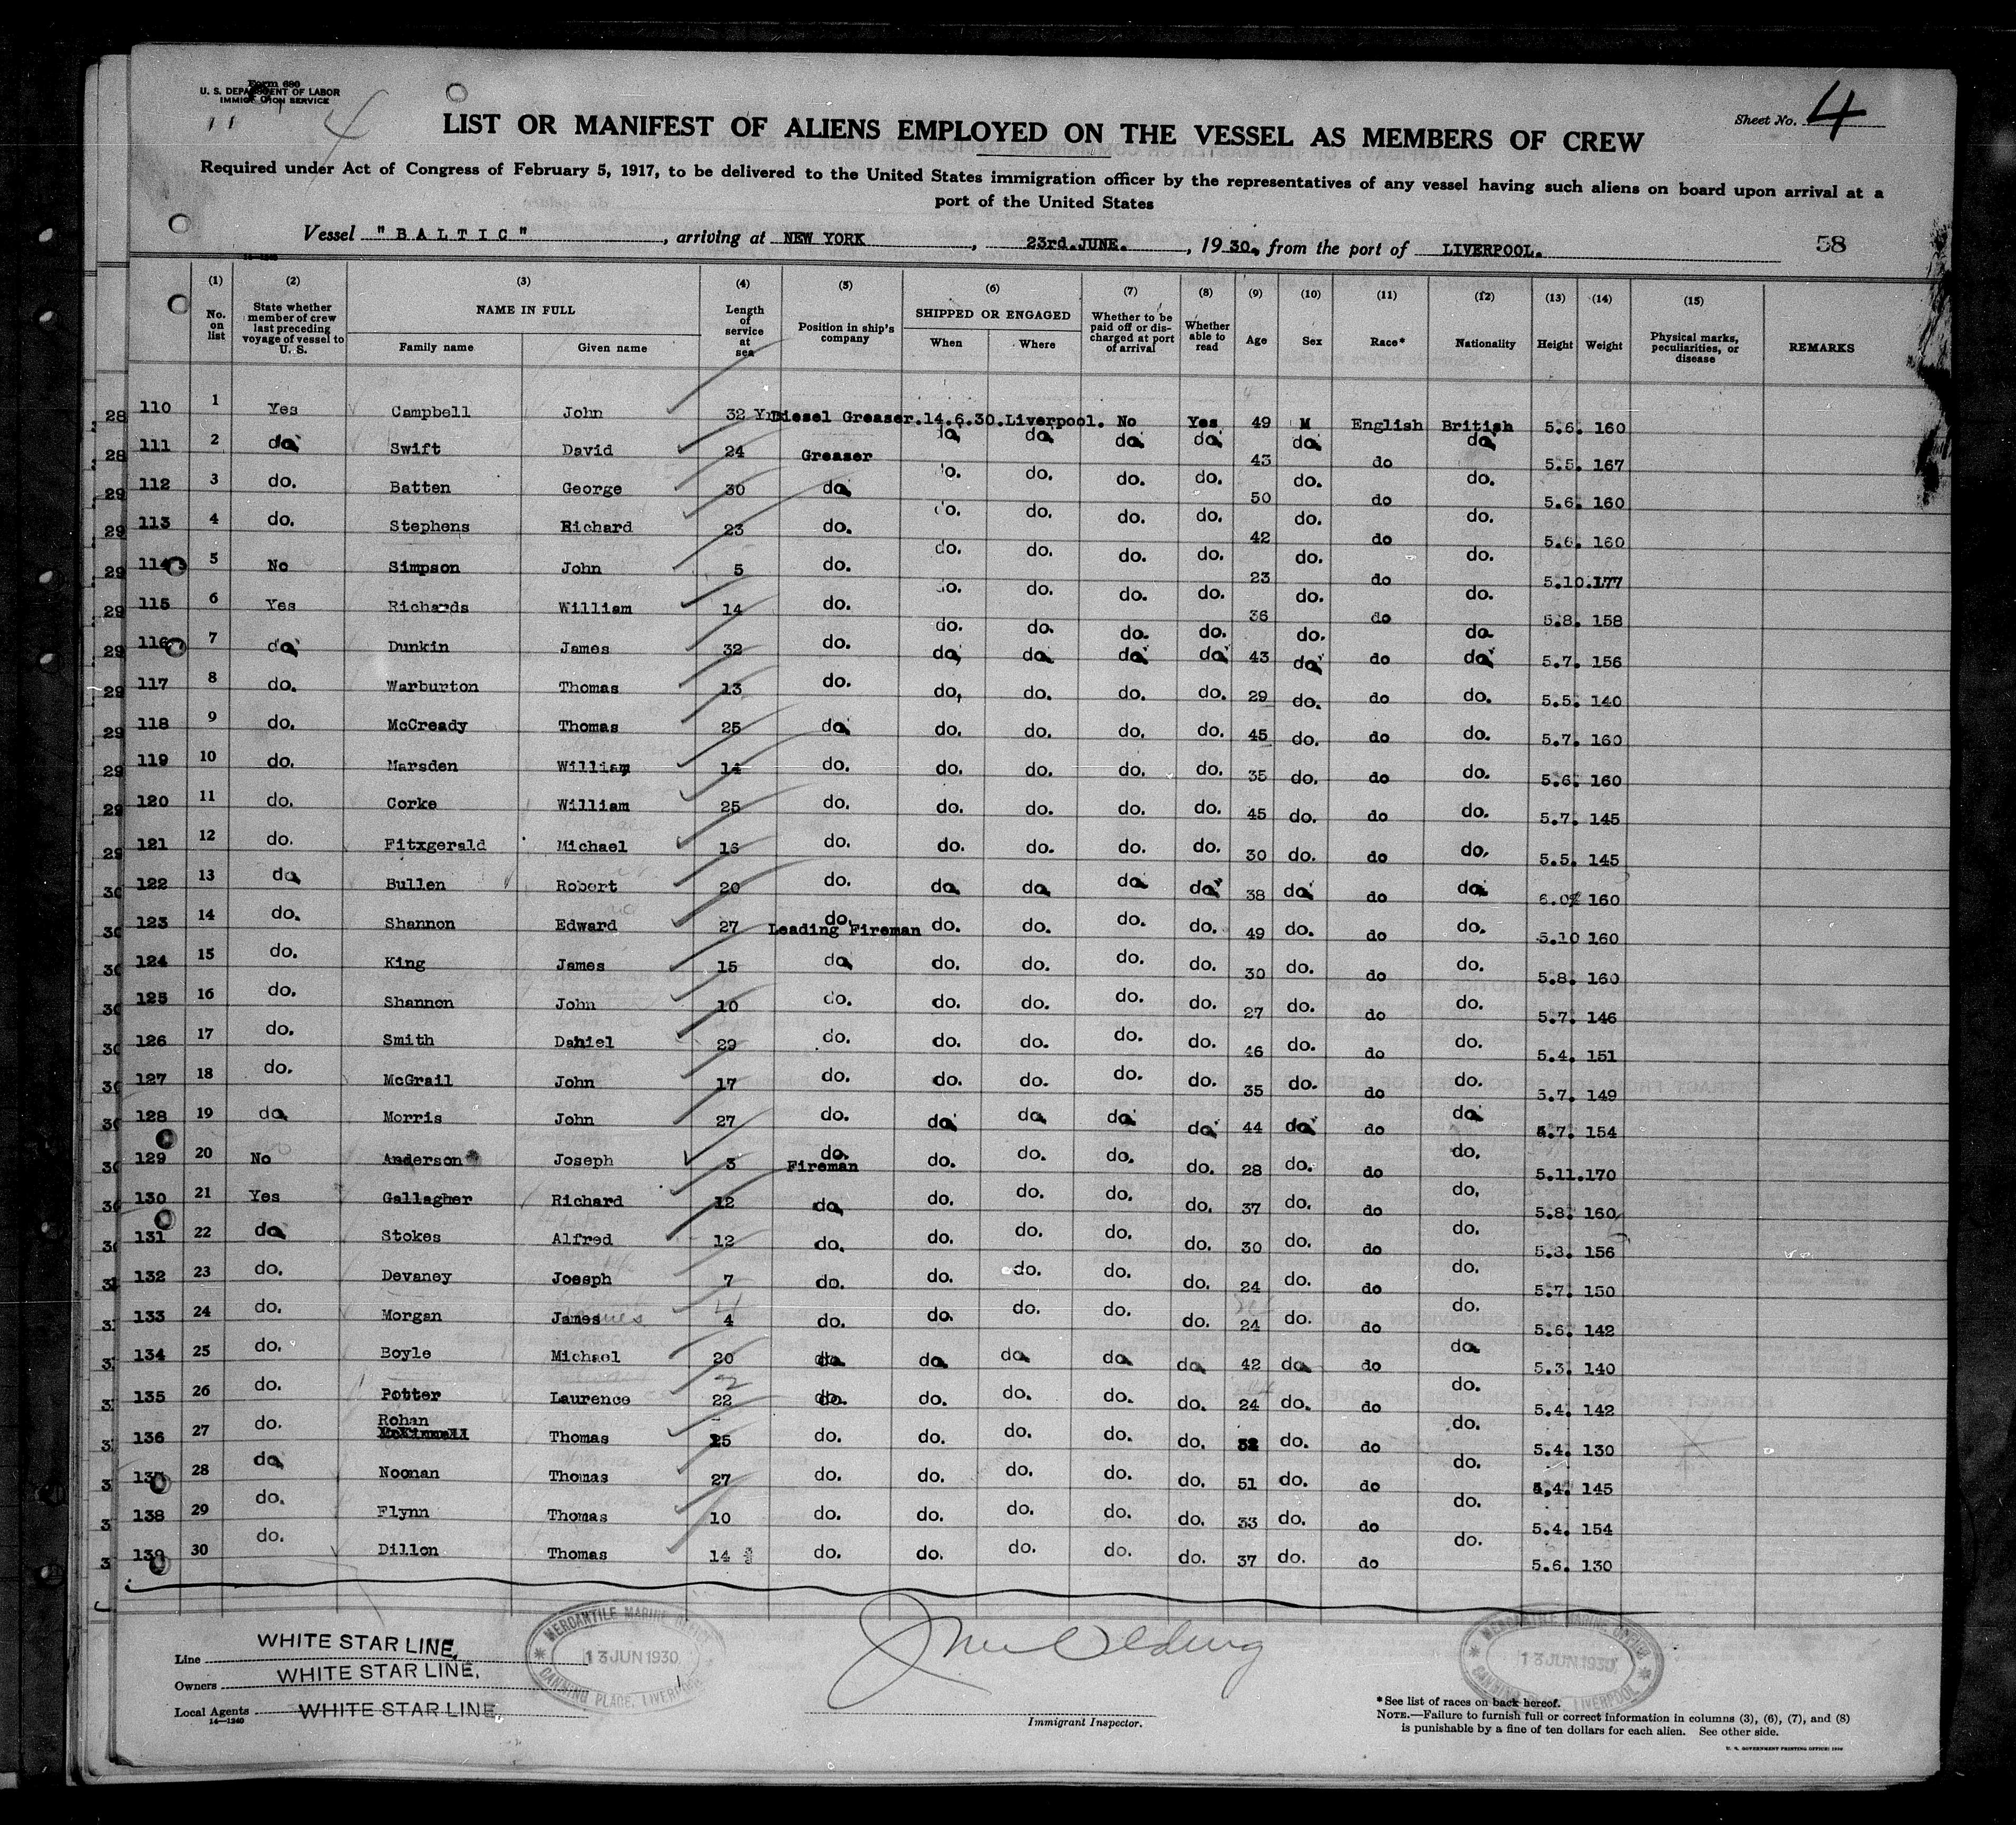 Form 680
U. S. DEPARTMENT OF LABOR
IMMIGRATION SERVICE
11
4
Sheet No. 4
LIST OR MANIFEST OF ALIENS EMPLOYED ON THE VESSEL AS MEMBERS OF CREW
Required under Act of Congress of February 5, 1917, to be delivered to the United States immigration officer by the representatives of any vessel having such aliens on board upon arrival at a
port of the United States
Vessel "BALTIC", arriving at NEW YORK, 23rd.JUNE., 1930, from the port of LIVERPOOL. 58
(1) (2) (3) (4) (5) (6) (7) (8) (9) (10) (11) (12) (13) (14) (15)
No. on list State whether member of crew last preceding voyage of vessel to U. S. NAME IN FULL Family name Given name Length of service at sea Position in ship's company SHIPPED OR ENGAGED When Where Whether to be paid off or discharged at port of arrival Whether able to read Age Sex Race* Nationality Height Weight Physical marks, peculiarities, or disease REMARKS
28 110 1 Yes Campbell John 32 Yrs Diesel Greaser. 14.6.30. Liverpool. No Yes 49 M English British 5.6. 160
28 111 2 do Swift David 24 Greaser do do do do 43 do do do 5.5. 167
29 112 3 do. Batten George 30 do do. do. do. do. 50 do. do do. 5.6. 160
29 113 4 do. Stephens Richard 23 do. do. do. do. do. 42 do. do do. 5.6. 160
29 114 5 No Simpson John 5 do. do. do. do. do. 23 do. do do. 5.10. 177
29 115 6 Yes Richards William 14 do. do. do. do. do. 36 do. do do. 5.8. 158
29 116 7 do Dunkin James 32 do. do. do. do. do. 43 do. do do. 5.7. 156
29 117 8 do. Warburton Thomas 13 do. do, do. do. do. 29 do. do do. 5.5. 140
29 118 9 do. McCready Thomas 25 do do. do. do. do. 45 do. do do. 5.7. 160
29 119 10 do. Marsden William 14 do. do. do. do. do. 35 do. do do. 5.6. 160
29 120 11 do. Corke William 25 do. do. do. do. do. 45 do. do do. 5.7. 145
29 121 12 do. Fitxgerald Michael 16 do. do. do. do. do. 30 do. do do. 5.5. 145
30 122 13 do Bullen Robert 20 do. do do do do 38 do do do 6.0 160
30 123 14 do. Shannon Edward 27 do. Leading Fireman do. do. do. do. 49 do. do do. 5.10 160
30 124 15 do. King James 15 do do. do. do. do. 30 do. do do. 5.8. 160
30 125 16 do. Shannon John 10 do. do. do. do. do. 27 do. do do. 5.7. 146
30 126 17 do. Smith Daniel 29 do. do. do. do. do. 46 do. do do. 5.4. 151
30 127 18 do. McGrail John 17 do. do. do. do. do. 35 do. do do. 5.7. 149
30 128 19 do Morris John 27 do. do do do do 44 do do do 5.7. 154
30 129 20 No Anderson Joseph 3 do. Fireman do. do. do. do. 28 do. do do. 5.11. 170
30 130 21 Yes Gallagher Richard 12 do do. do. do. do. 37 do. do do. 5.8. 160
30 131 22 do Stokes Alfred 12 do. do. do. do. do. 30 do. do do. 5.8. 156
132 23 do. Devaney Joseph 7 do. do. do. do. do. 24 do. do do. 5.7. 150
133 24 do. Morgan James 4 do. do. do. do. do. 24 do. do do. 5.6. 142
134 25 do. Boyle Michael 20 do do do do do 42 do do do 5.3. 140
135 26 do. Potter Laurence 22 do. do. do. do. do. 24 do. do do. 5.4. 142
136 27 do. Rohan Thomas do. do. do. do. do. 32 do. do do. 5.4. 130
137 28 do Noonan Thomas 27 do. do. do. do. do. 51 do. do do. 5.4. 145
138 29 do. Flynn Thomas 10 do. do. do. do. do. 33 do. do do. 5.4. 154
139 30 do. Dillon Thomas 14 do. do. do. do. do. 37 do. do do. 5.6. 130
Line WHITE STAR LINE.
Owners WHITE STAR LINE.
Local Agents WHITE STAR LINE.
14—1240
MERCANTILE MARINE OFFICE
13 JUN 1930
CANNING PLACE, LIVERPOOL
Immigrant Inspector.
MERCANTILE MARINE OFFICE
13 JUN 1930
CANNING PLACE, LIVERPOOL
*See list of races on back hereof.
NOTE.—Failure to furnish full or correct information in columns (3), (6), (7), and (8)
is punishable by a fine of ten dollars for each alien. See other side.